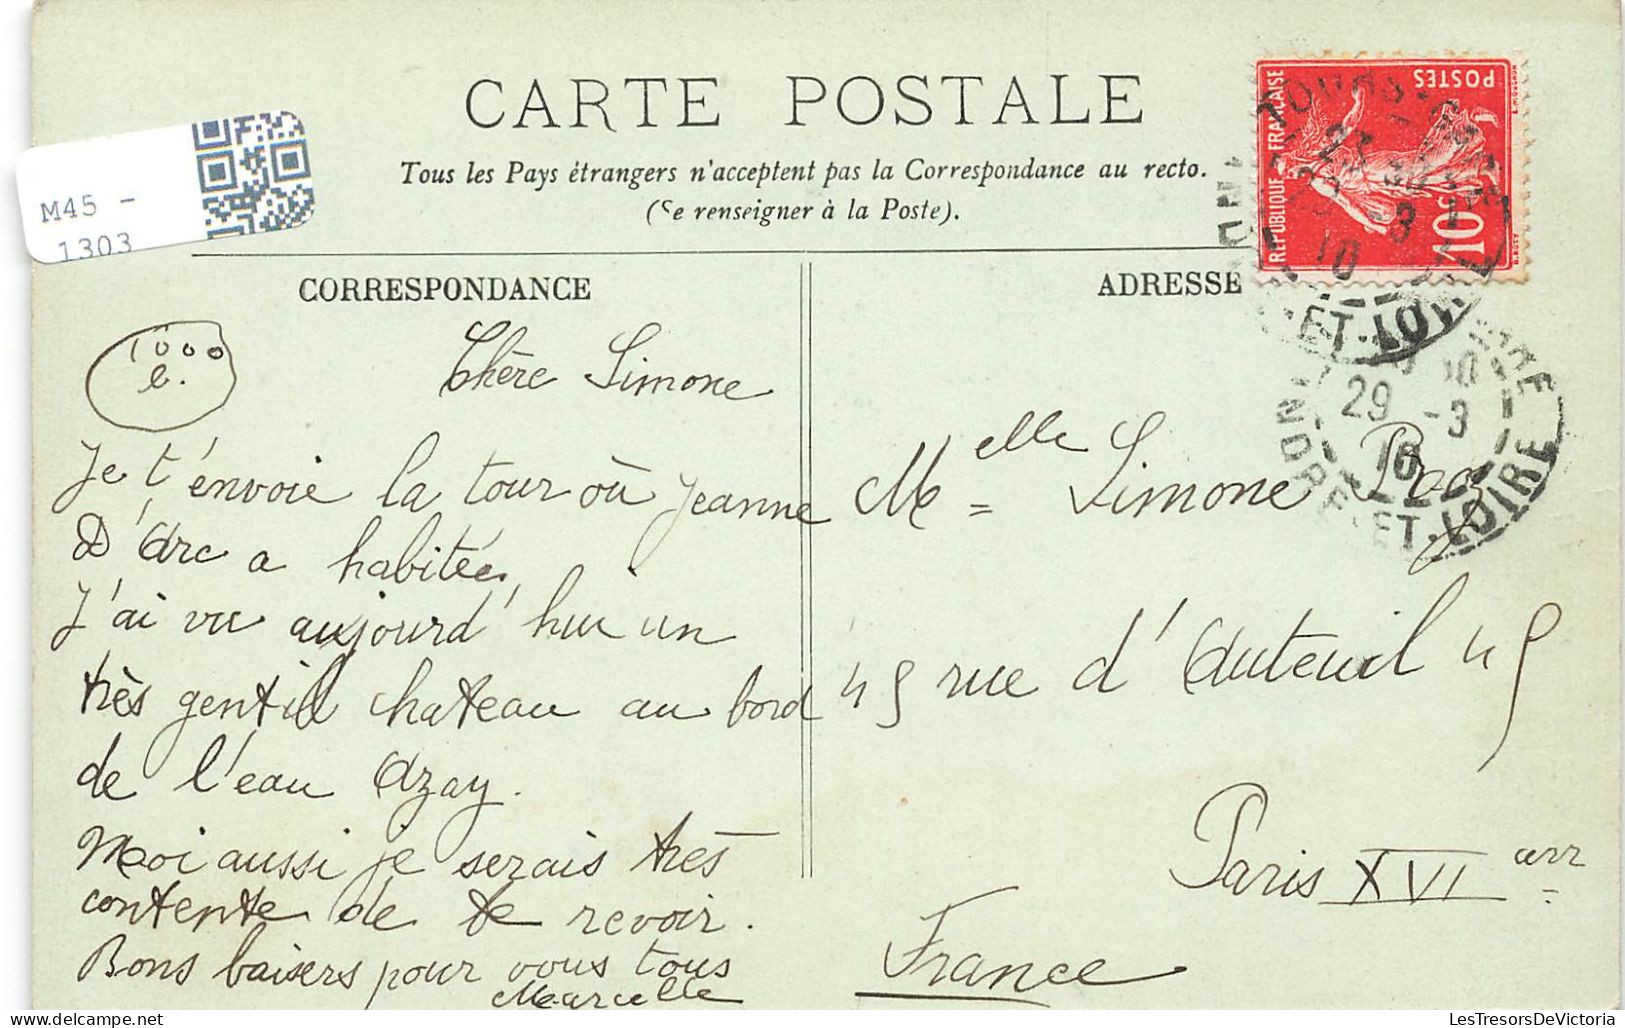 CARTE POSTALE
Tous les Pays étrangers n'acceptent pas la Correspondance au recto.
(Se renseigner à la Poste).
M45 -
1303
REPUBLIQUE FRANÇAISE
POSTES
10c
INDRE-ET-LOIRE
29 -3
10
CORRESPONDANCE
ADRESSE
1000
e.
Chère Simone
Je t'envoie la tour où Jeanne
D'Arc a habitée,
J'ai vu aujourd'hui un
très gentill chateau au bord
de l'eau Azay.
Moi aussi je serais très
contente de te revoir.
Bons baisers pour vous tous
Marcelle
Melle Simone
45 rue d'Auteuil 45
Paris XVI arr
France
LesTresorsDeVictoria